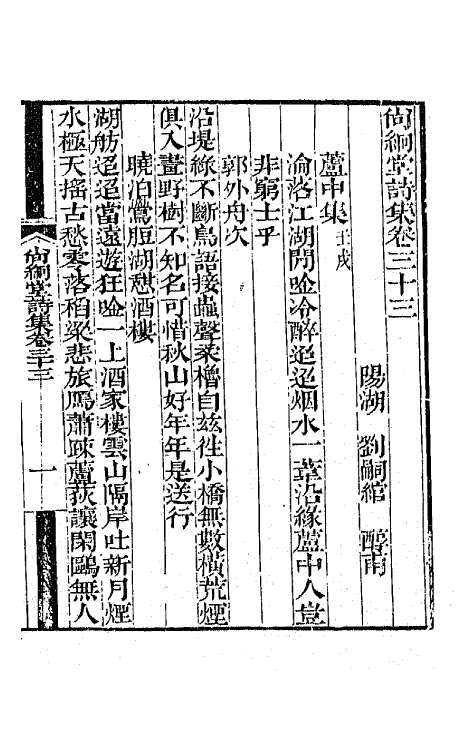 尙絅堂詩集卷三十三
陽湖 劉嗣綰 醇甫
蘆中集 壬戌
淪落江湖閒唫冷醉迢迢烟水一葦沿緣蘆中人豈
非窮士乎
郭外舟次
沿堤綠不斷鳥語接蟲聲柔櫓自兹往小橋無數橫荒煙
俱入畫野樹不知名可惜秋山好年年是送行
曉泊鶯脰湖憇酒樓
湖舫迢迢當遠遊狂唫一上酒家樓雲山隔岸吐新月煙
水極天搖古愁零落稻粱悲旅鴈蕭疎蘆荻讓閑鷗無人
尙絅堂詩集卷三十三 一